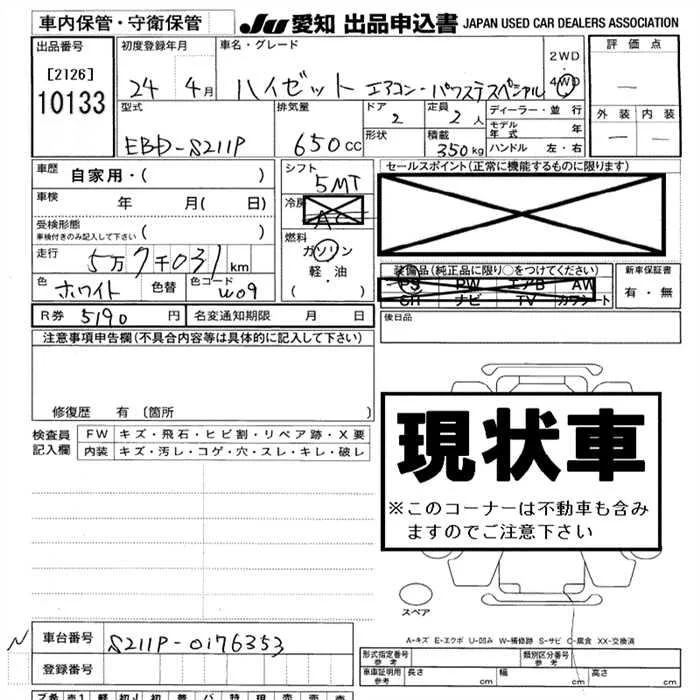 車内保管・守衛保管
JU 愛知 出品申込書 JAPAN USED CAR DEALERS ASSOCIATION
出品番号
[2126]
10133
初度登録年月
24年 4月
車名・グレード
ハイゼット エアコン・パワステスペシャル
2WD
・
4WD
評価点
—
外装 内装
— —
型式
EBD-S211P
排気量
650cc
ドア
2
形状
定員
2人
積載
350kg
ディーラー・並行
モデル年式 年
ハンドル 左・右
車歴
自家用・( )
車検
年 月( 日)
受検形態
車検付きのみ記入して下さい ( )
走行
5万7千031km
色
ホワイト
色替
色コード
W09
シフト
5MT
冷房
AC
燃料
ガソリン
軽・油
( ・ )
セールスポイント(正常に機能するものに限ります)
装備品(純正品に限り○をつけてください)
PS PW エアB AW
SR ナビ TV カワシート
新車保証書
有・無
R券 5190円
名変通知期限 月 日
後日品
注意事項申告欄(不具合内容等は具体的に記入して下さい)
修復歴 有〔箇所 〕
検査員
記入欄
FW キズ・飛石・ヒビ割・リペア跡・X要
内装 キズ・汚レ・コゲ・穴・スレ・キレ・破レ
現状車
※このコーナーは不動車も含み
ますのでご注意下さい
スペア
A-キズ E-エクボ U-凹み W-補修跡 S-サビ C-腐食 XX-交換済
N
車台番号
S211P-0176353
登録番号
形式指定番号
参考
類別区分番号
参考
車庫証明用
参考
長さ 幅 高さ